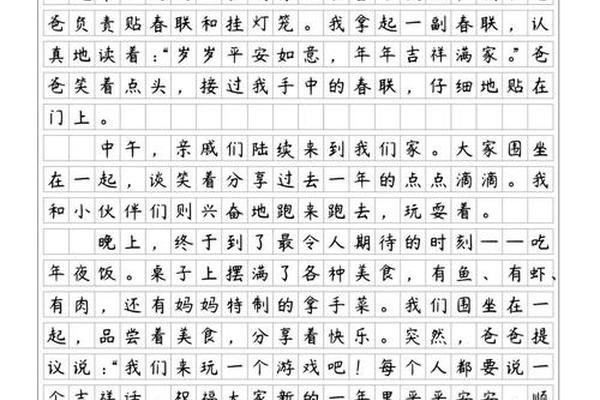 爸负责贴春联和挂灯笼。我拿起一副春联，认
真地读着：“岁岁平安如意，年年吉祥满家。”爸
爸笑着点头，接过我手中的春联，仔细地贴在
门上。
中午，亲戚们陆续来到我们家。大家围坐
在一起，谈笑着分享过去一年的点点滴滴。我
和小伙伴们则兴奋地跑来跑去，玩耍着。
晚上，终于到了最令人期待的时刻——吃
年夜饭。桌子上摆满了各种美食，有鱼、有虾、
有肉，还有妈妈特制的拿手菜。我们围坐在一
起，品尝着美食，分享着快乐。突然，爸爸提
议说：“我们来玩一个游戏吧！每个人都要说一
个吉祥话，祝福大家新的一年里平平安安、顺